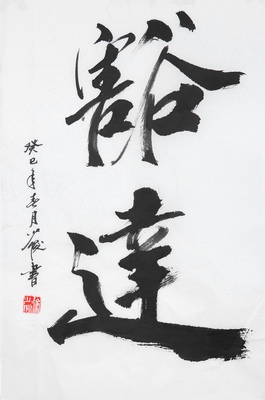 豁達
癸巳年春月小發書